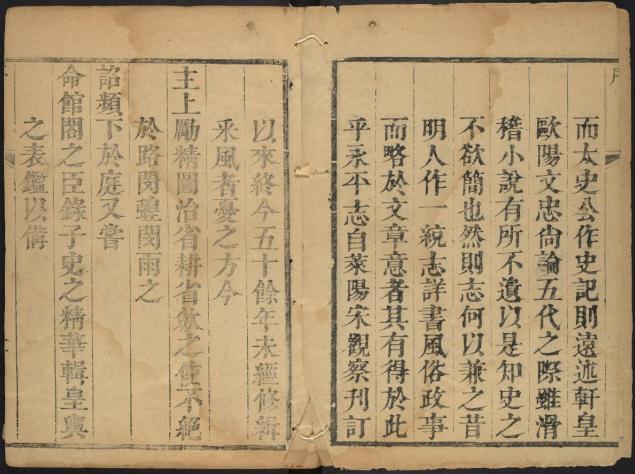 序
而太史公作史記則遠述軒皇
歐陽文忠尙論五代之際雖滑
稽小說有所不遺以是知史之
不欲簡也然則志何以兼之昔
明人作一統志詳書風俗政事
而略於文章意者其有得於此
乎永平志自萊陽宋觀察刊訂
以來終今五十餘年未經修緝
釆風者憂之方今
主上勵精圖治省耕省斂之使不絕
於路閔蝗閔雨之
詔頻下於庭又嘗
命館閣之臣錄子史之精華輯皇輿
之表鑑以備